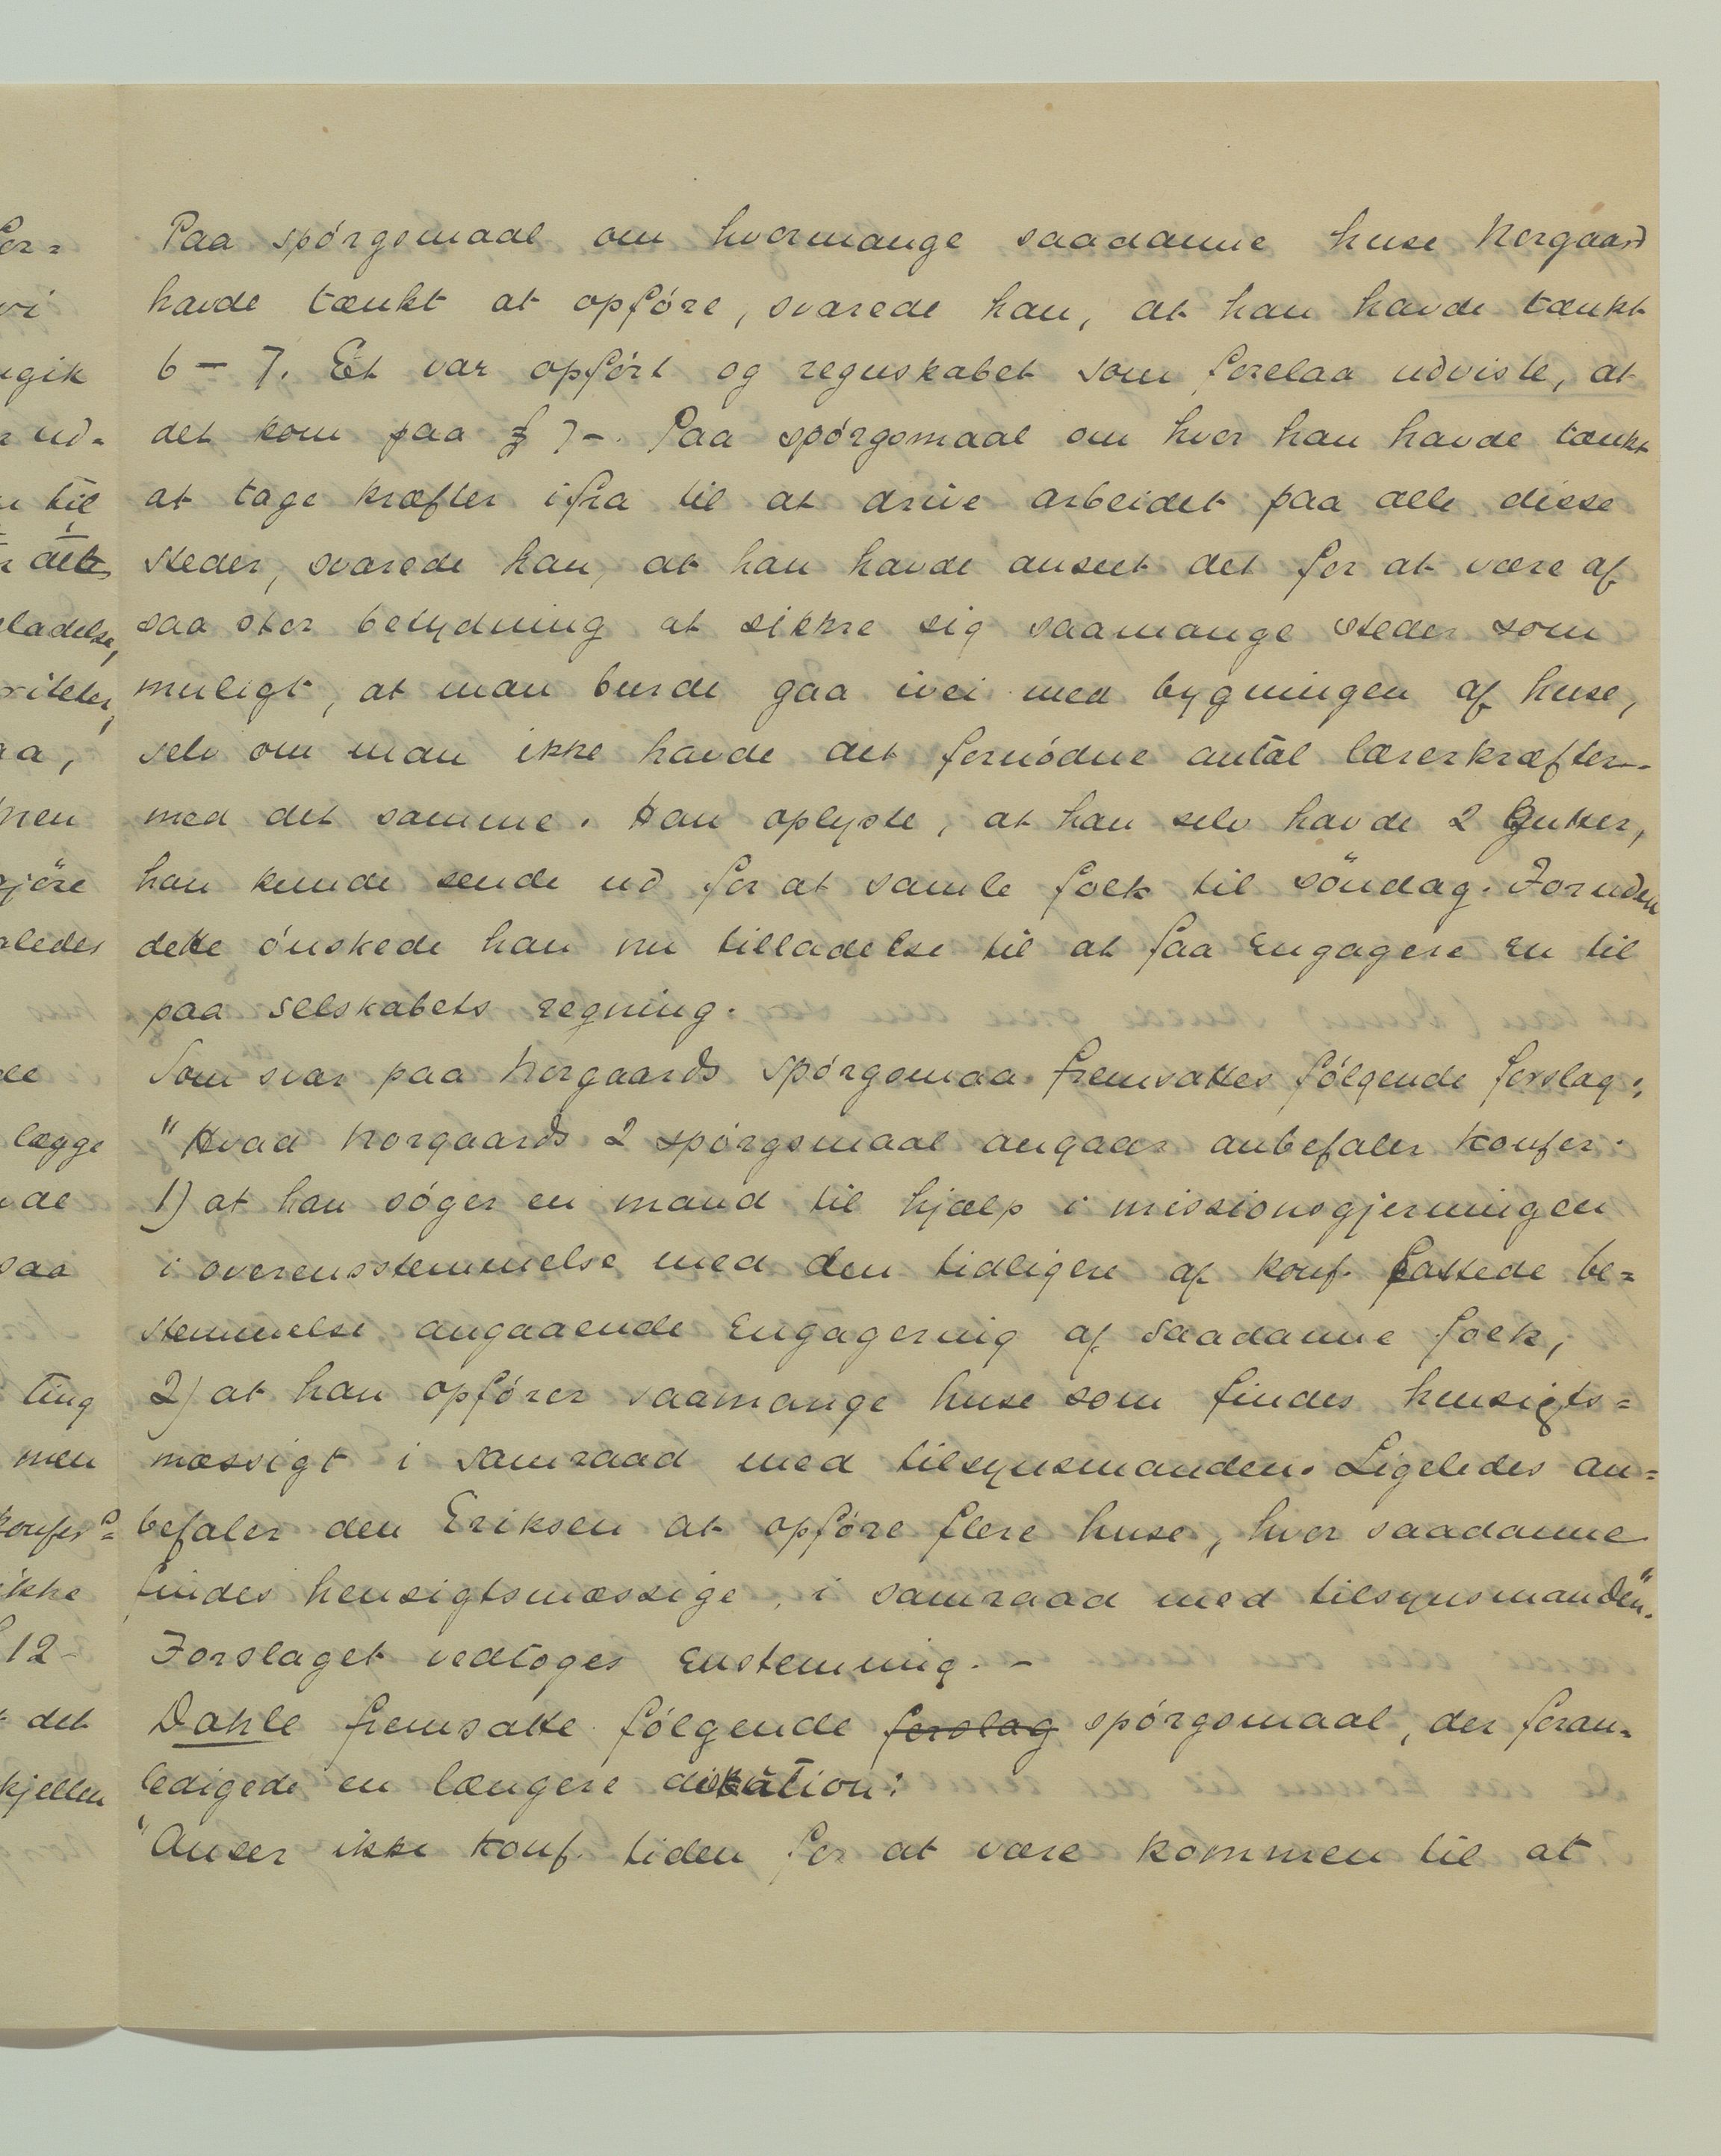 for=
vi
ngik
ud=
til
det
ladelse,
aa,
men
gjöre
aledes
de
lægge
de
saa
ting
men
konfer=
ikke
12-
det
skjellen
Paa spórgsmaal om hvormange saadanne huse Norgaard
havde tænkt at opfóre, svarede han, at han havde tænkt
6 – 7. Et var opfórt og regnskabet som forelaa udviste, at
det kom paa £ 7-. Paa spórgsmaal om hvor han havde tænkt
at tage kræfter ifra til at drive arbeidet paa alle disse
steder, svarede han, at han havde anseet det for at være af
saa stor betydning at sikkre sig saamange steder som
muligt, at man burde gaa ivei med bygningen af huse,
selv om man ikke havde det fornódne antal lærerkræfter
med det samme. Han oplyste, at han selv havde 2 Gutter,
han kunde sende ud for at samle folk til söndag. Foruden
dette ónskede han nu tilladelse til at faa engagere en til
paa selskabets regning.
Som svar paa Norgaards spórgsmaal fremsattes fólgende forslag:
"Hvad Norgaards 2 spórgsmaal angaar anbefaler konfer.
1) at han sóger en mand til hjælp i missionsgjerningen
i overensstemmelse med den tidligere af konf. fattede be=
stemmelse angaaende engagering af saadanne folk;
2) at han opfórer saamange huse som findes hensigts=
mæssigt i samraad med tilsynsmanden. Ligeledes an=
befaler den Eriksen at opfóre flere huse, hvor saadanne
findes hensigtsmæssige, i samraad med tilsynsmanden".
Forslaget vedtoges enstemmig. -
Dahle fremsatte fólgende forslag spórgsmaal, der foran=
ledigede en længere diskution:
"Anser ikke konf. tiden for at være kommen til at